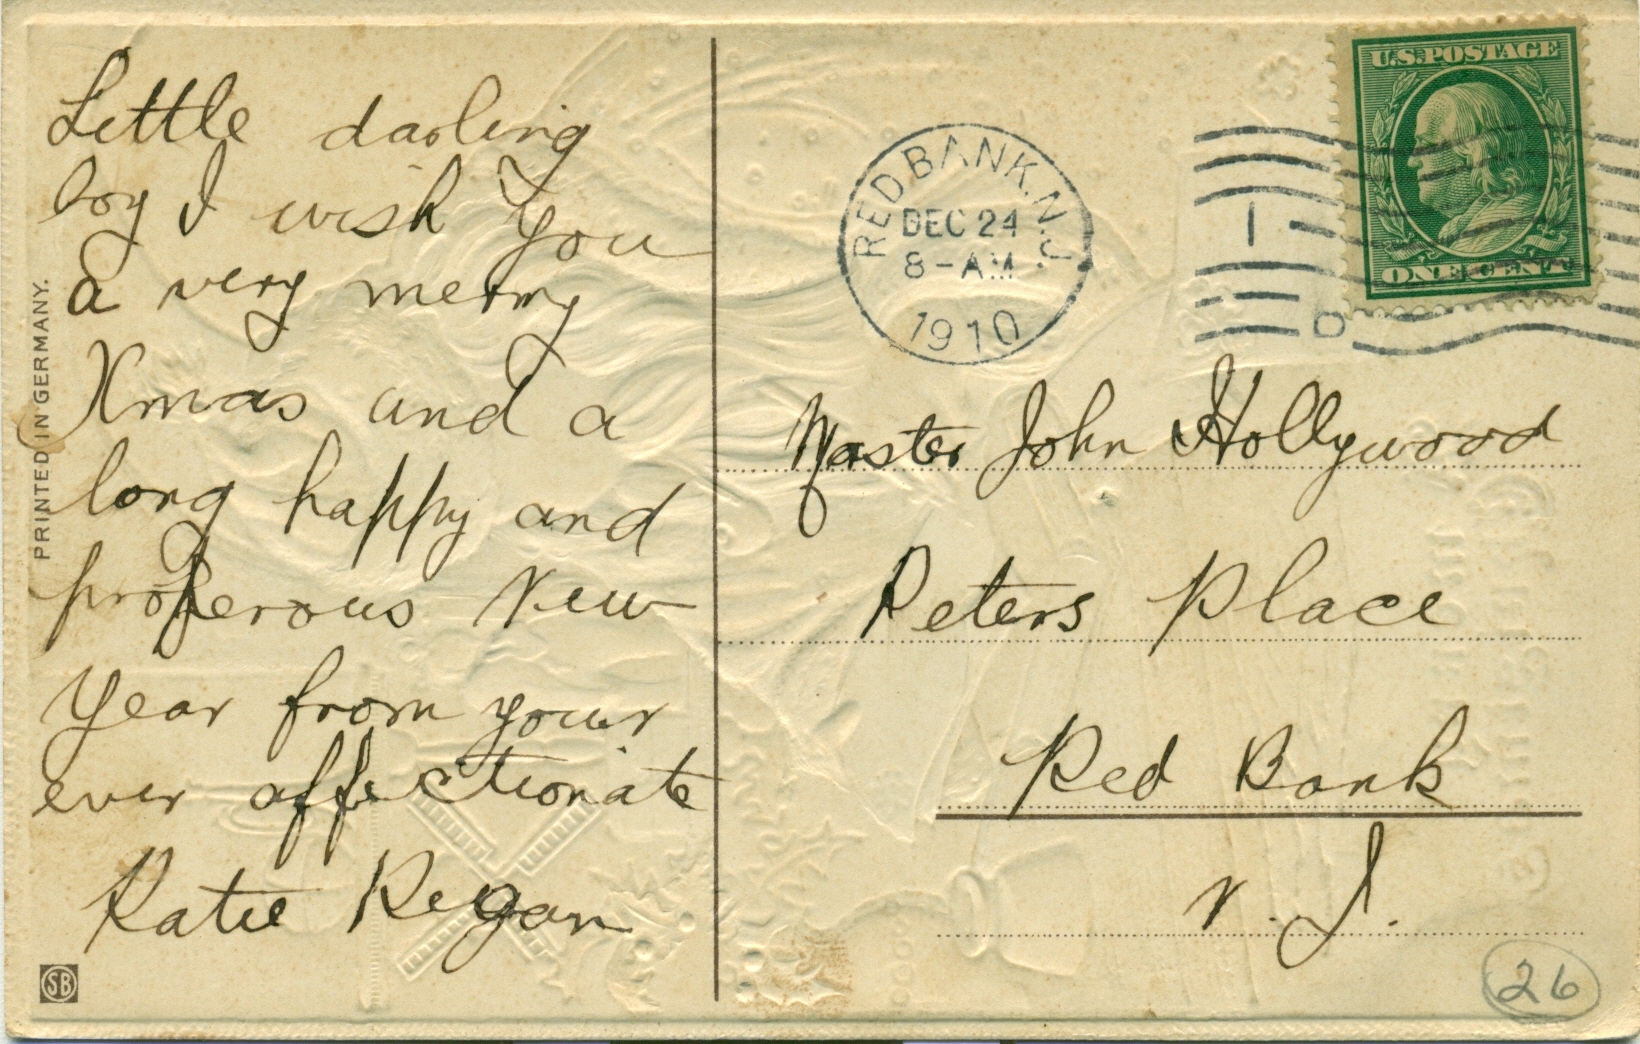 Little darling
boy I wish you
a very merry
Xmas and a
long happy and
properous New
Year from your
ever affectionate
Katie Regan
PRINTED IN GERMANY.
SB
U.S. POSTAGE
ONE CENT
RED BANK. N.J.
DEC 24
8-AM
1910
1
D
Master John Hollywood
Peters Place
Red Bank
N. J.
26